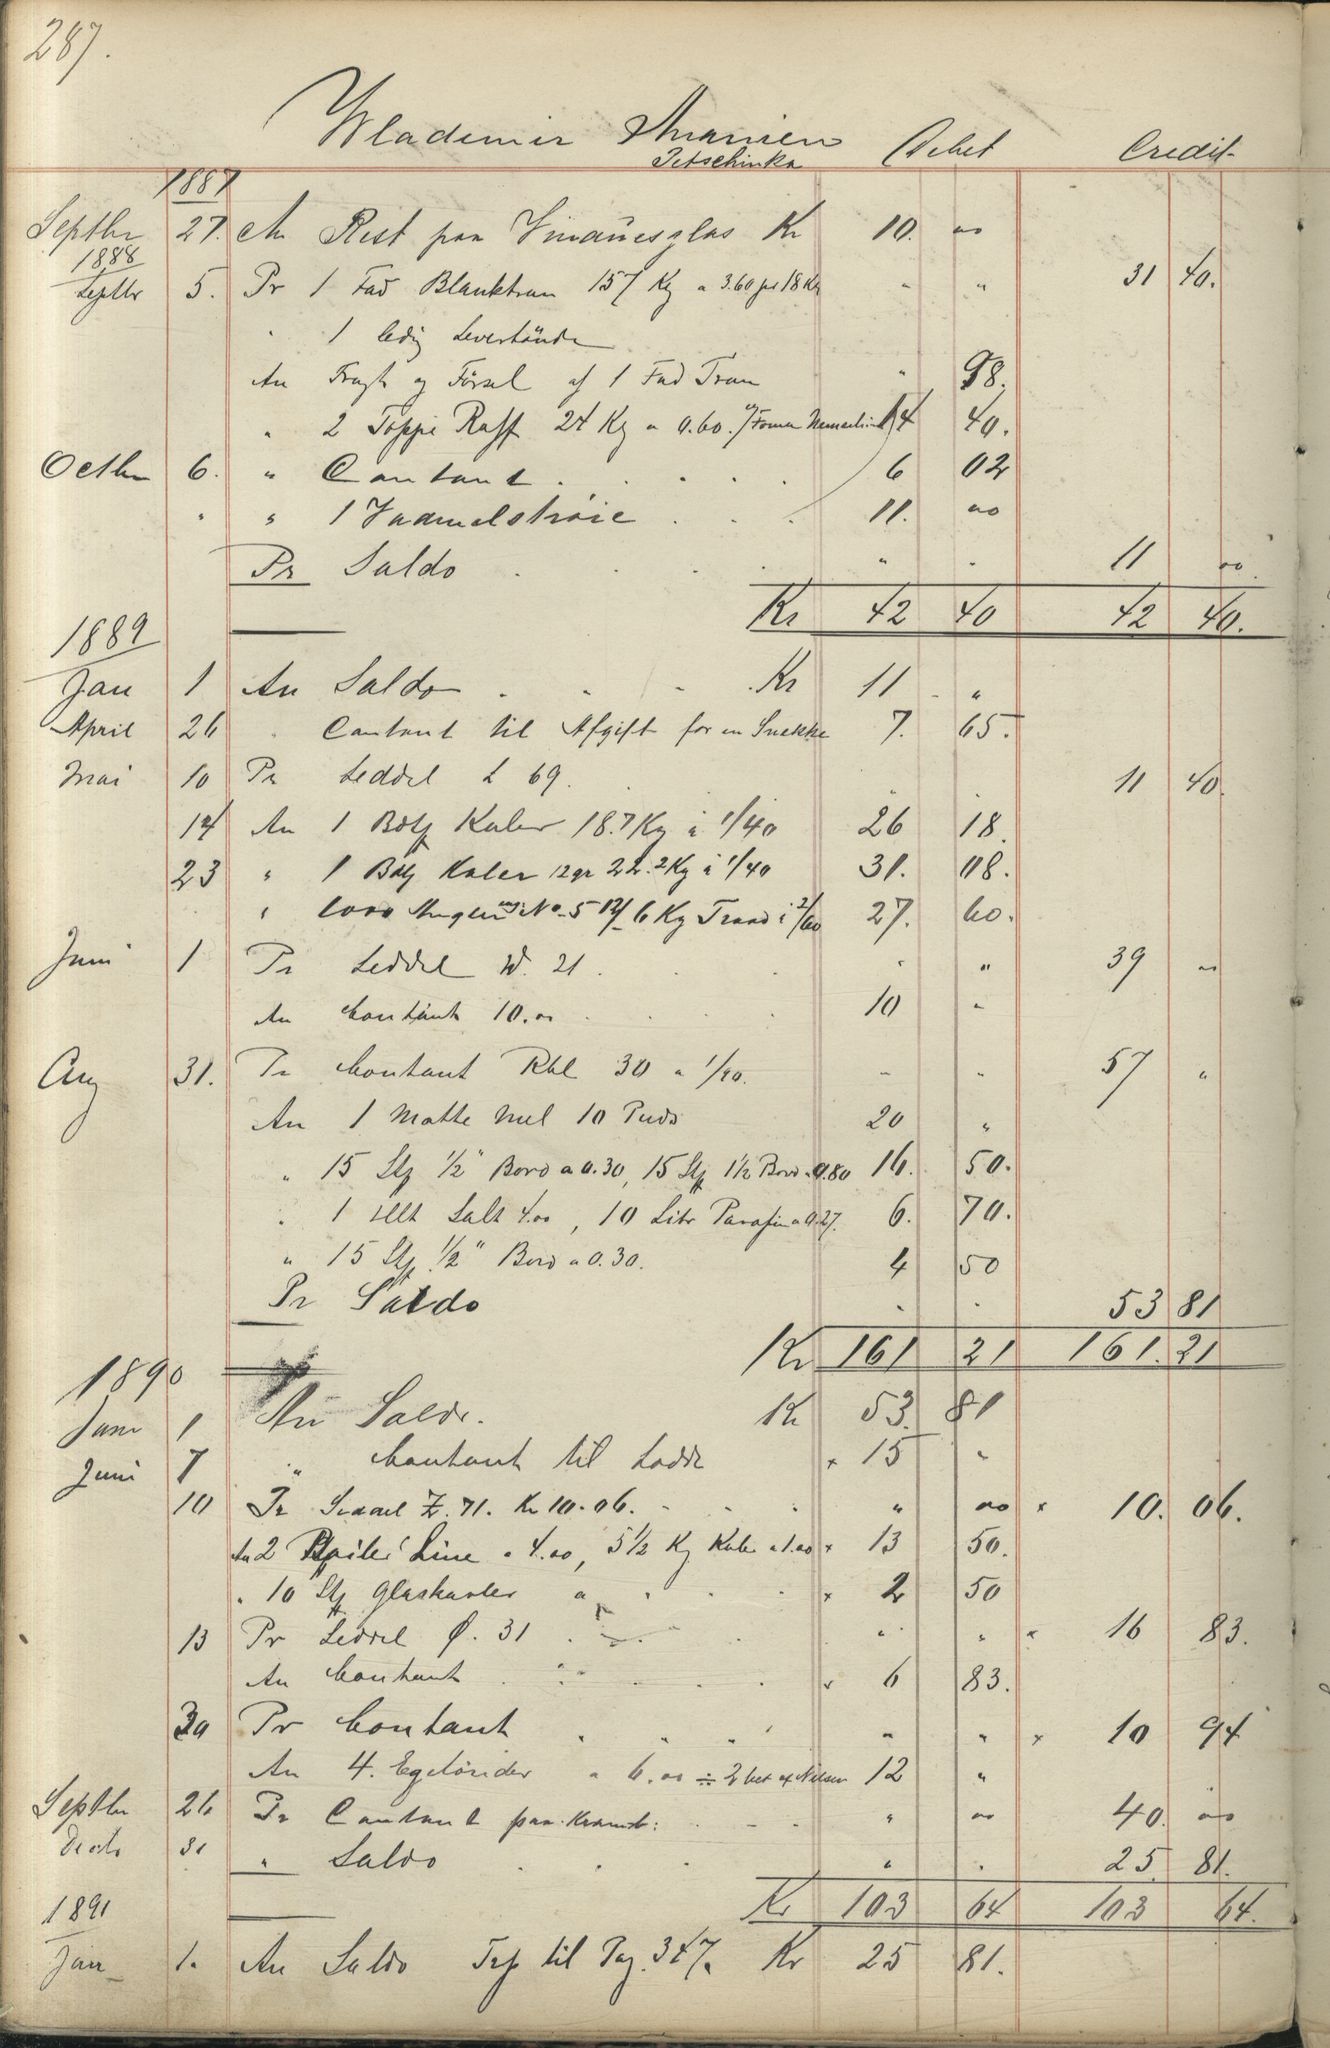 287.
Wladimir Ananien Debet Credit
Petschinka
1887
Septbr 27. An Rest paa Vinduesglas Kr 10. 00
1888
Septbr 5. Pr 1 Fad Blanktran 157 Kg a 3.60 pr 18 Kg " " 31 40.
" 1 ledig Levertönde
An Fragt og Försel af 1 Fad Tran " 98.
" 2 Toppe Raff 24 Kg a 0.60. 14 40.
Octbr 6. " Contant 6 02
" " 1 Vadmelströie 11. 00
Pr Saldo " " 11 00
Kr 42 40 42 40.
1889
Jan 1 An Saldo Kr 11 "
April 26 " Contant til Afgift for en Snekke 7. 65.
Mai 10 Pr Seddel L 69. 11 40.
14 An 1 Kabler 18.7 Kg à 1/40 26 18.
23 " 1 Kabler 12gr 22.2 Kg à 1/40 31. 08.
" 1000 Angler No 5 6 Kg Traad à 2/60 27. 60.
Juni 1 Pr Seddel W. 21. " " 39 00
An Contant 10.00 10 "
Aug 31. Pr Contant Rbl 30 a 1/90. " " 57 "
An 1 Matte Mel 10 Puds 20 "
" 15 Stk 1/2" Bord a 0.30, 15 Stk 1 1/2 Bord a 0.80 16. 50.
" 1 Salt 4.00, 10 Litr Parafin a 0.27. 6. 70.
" 15 Stk 1/2" Bord a 0.30. 4 50
Pr Saldo " " 53 81
Kr 161 21 161. 21
1890
Janr 1 An Saldo. Kr 53. 81
Juni 7 " Contant til Lodde x 15 "
10 Pr Seddel Z. 71. Kr 10.06. " 00 x 10. 06.
An 2 Line a 4.00, 5 1/2 Kg Kabler a 1.00 x 13 50.
" 10 Stk Glaskavler a " x 2 50
13 Pr Seddel Ø. 31 " " x 16 83.
An Contant x 6 83.
30 Pr Contant " " x 10 94
An 4. Egetönder a 6.00 ÷ 2 bet af Nilsen 12 "
Septbr 26 Pr Contant paa " 00 40. 00
Decb 31 " Saldo " " 25 81.
Kr 103 64 103 64.
1891
Jan 1. An Saldo Trp til Pag. 347. Kr 25 81.